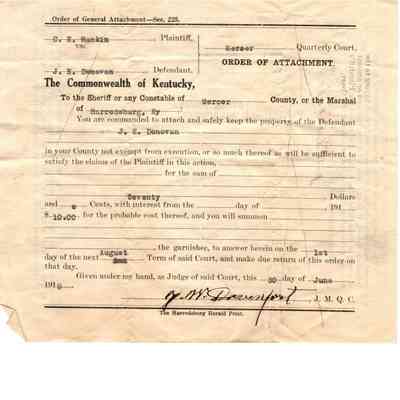 Order of General Attachment—Sec. 228.
C. E. Rankin Plaintiff,
vs.
Mercer Quarterly Court.
ORDER OF ATTACHMENT.
J. E. Donovan Defendant.
The Commonwealth of Kentucky,
To the Sheriff or any Constable of Mercer County, or the Marshal
of Harrodsburg, Ky
You are commanded to attach and safely keep the property of the Defendant
J. E. Donovan
in your County not exempt from execution, or so much thereof as will be sufficient to
satisfy the claims of the Plaintiff in this action,
for the sum of
Seventy Dollars
and Cents, with interest from the day of 191
$ 10.00 for the probable cost thereof, and you will summon
the garnishee, to answer herein on the 1st
day of the next August Term of said Court, and make due return of this order on
that day.
Given under my hand, as Judge of said Court, this 30 day of June
191
J. W. Davenport, J. M. Q. C.
The Harrodsburg Herald Print.